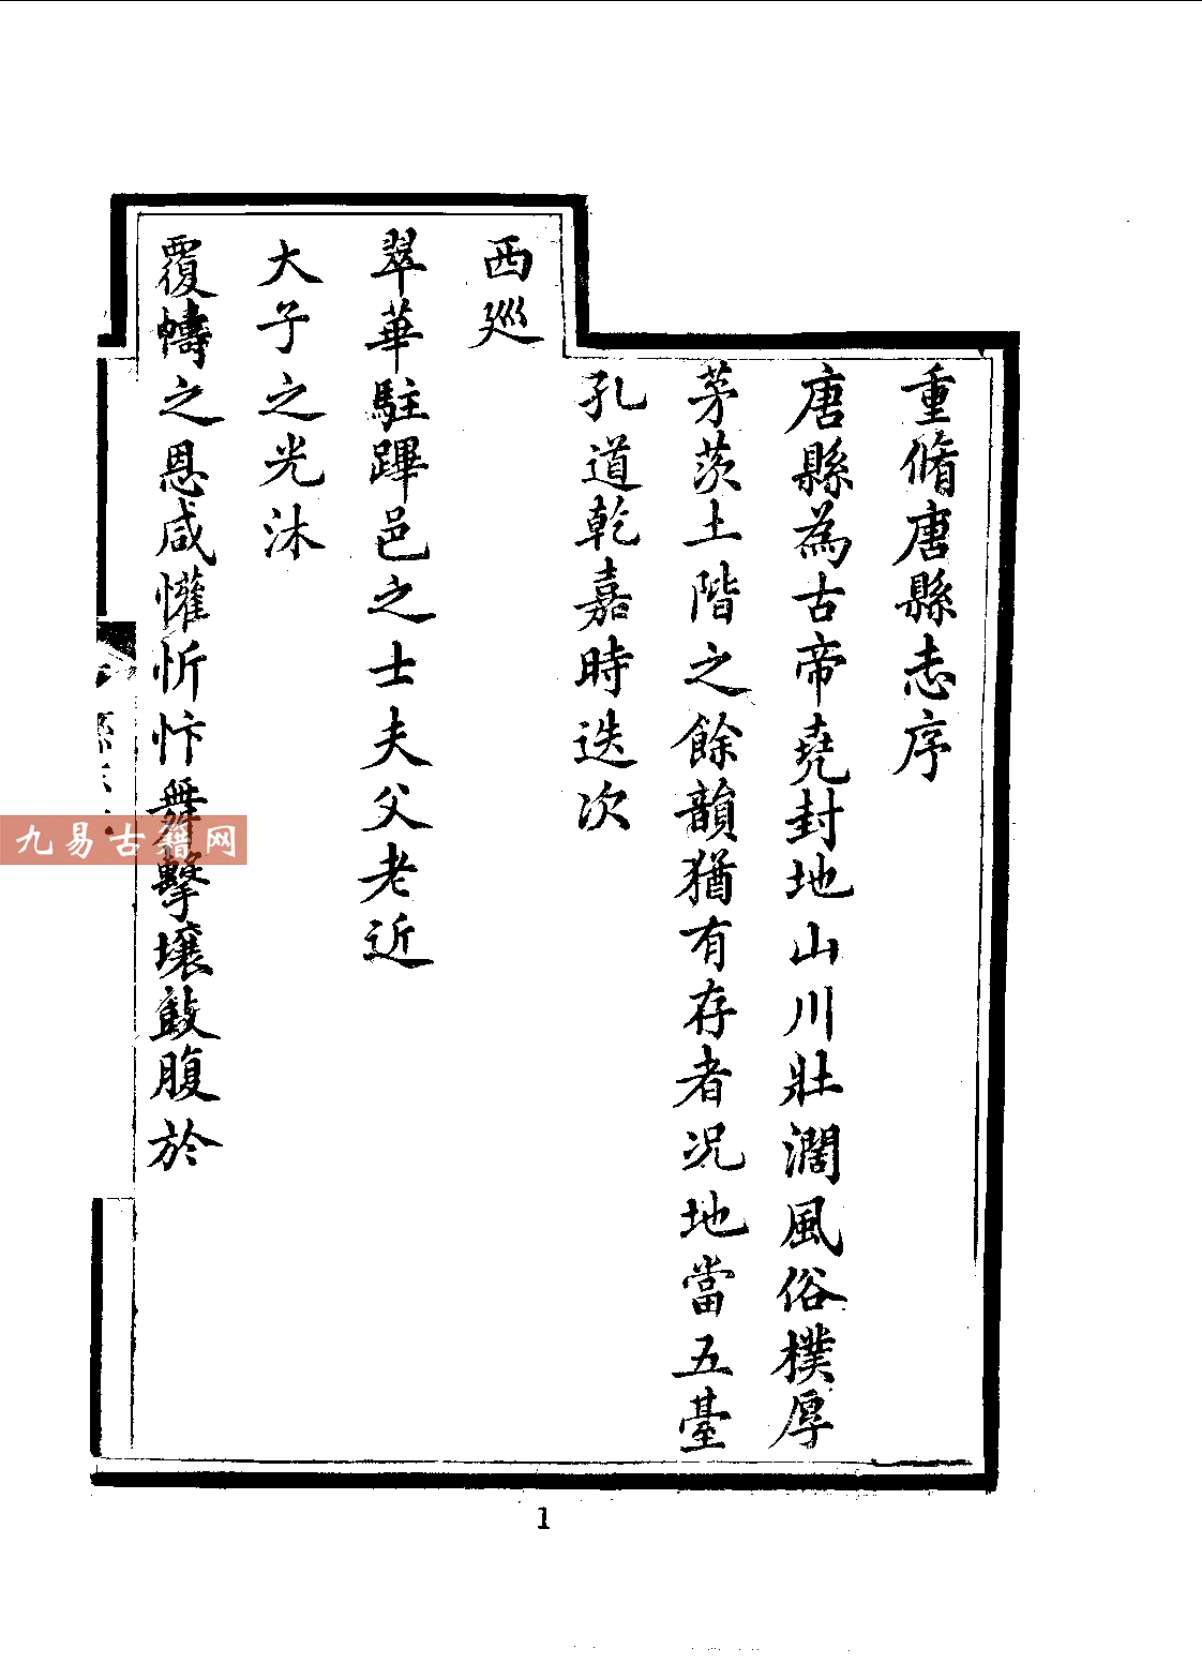 重脩唐縣志序
唐縣為古帝堯封地山川壯濶風俗樸厚
茅茨土階之餘韻猶有存者况地當五臺
孔道乾嘉時迭次
西廵
翠華駐蹕邑之士夫父老近
大子之光沐
覆幬之恩咸懽忻忭舞擊壤鼓腹於
九易古籍网
1